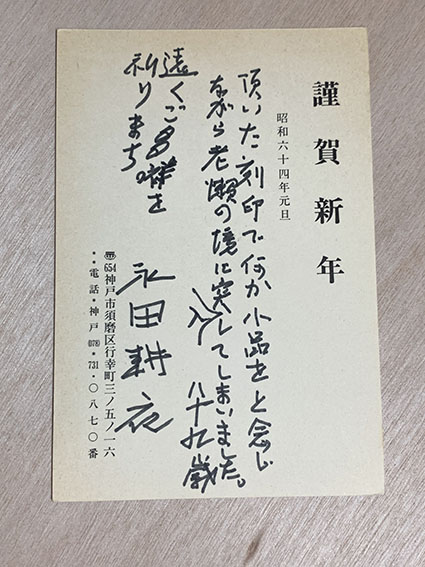 謹賀新年
昭和六十四年元旦
頂いた刻印で何か小品をと念じ
ながら老懶の境に突入してしまいました。
八十九歳
遠くご多祥を
祈りまち
永田耕衣
〠654神戸市須磨区行幸町三ノ五ノ一六
・・電話・神戸(078)・731・〇八七〇番